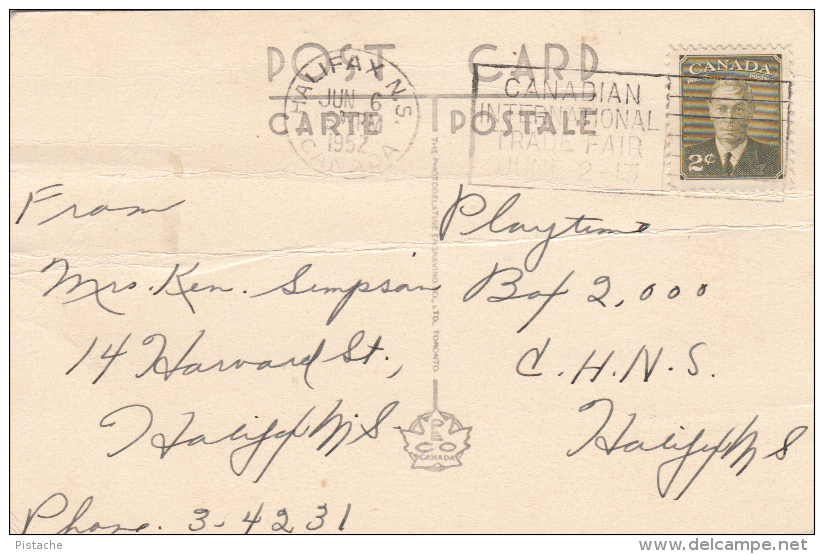 POST CARD
CARTE POSTALE
HALIFAX N.S.
JUN 6
1952
CANADA
CANADIAN
INTERNATIONAL
TRADE FAIR
JUNE 2-13
CANADA
2¢
From
Mrs. Ken. Simpson
14 Harvard St.,
Halifax N.S.
Phone. 3-4231
THE PHOTOGELATINE ENGRAVING CO., LTD. TORONTO
PECO
CANADA
Playtime
Box 2,000
C.H.N.S.
Halifax N S
Pistache
delcampe.net